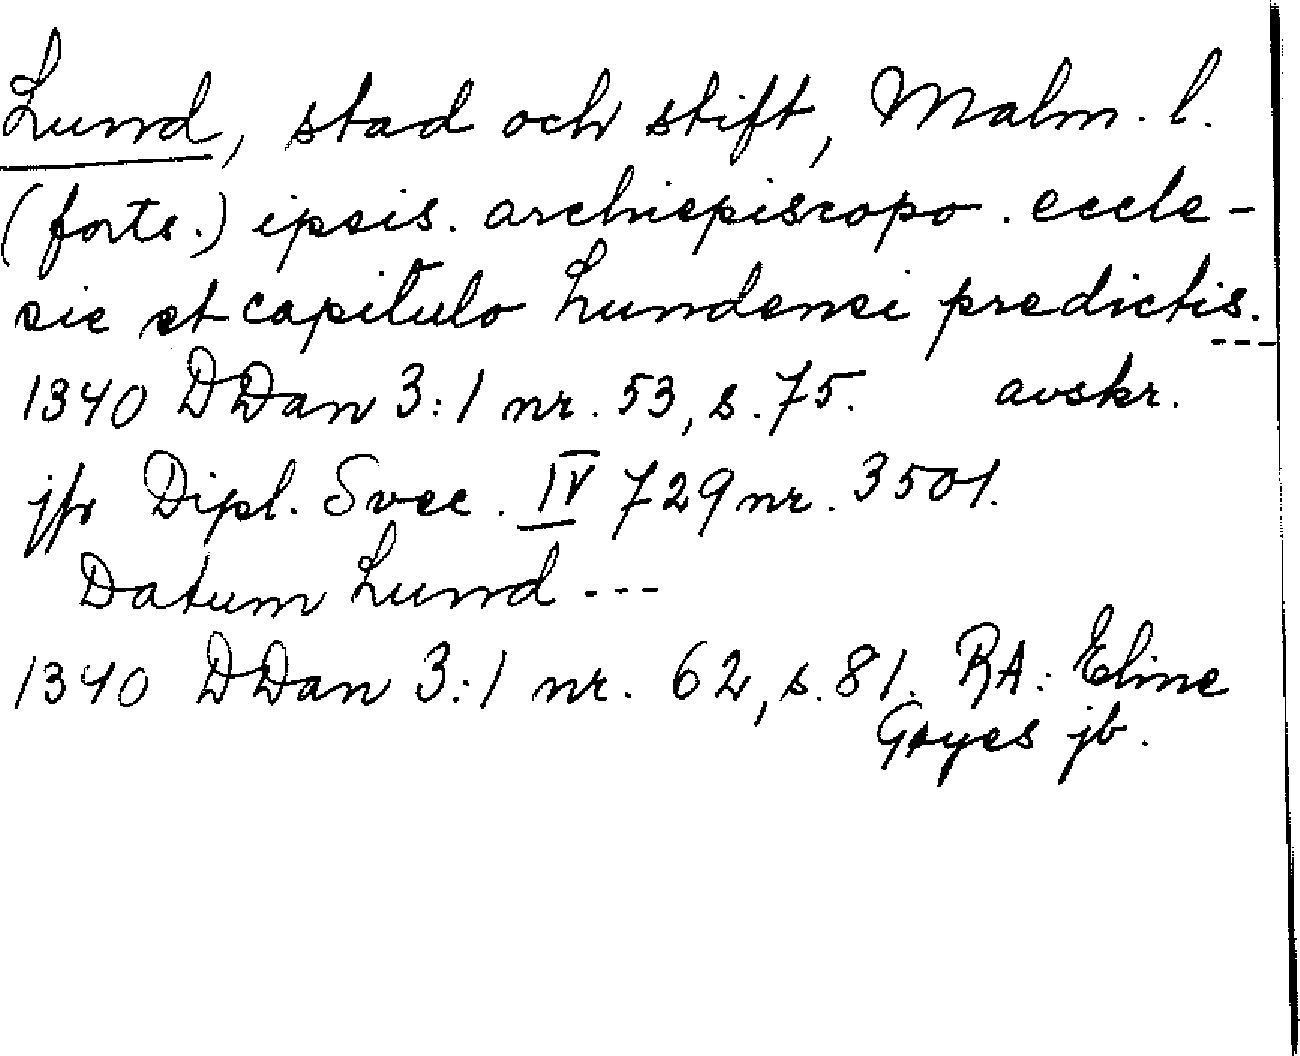 Lund, stad och stift, Malm. l.
(forts.) ipsis. archiepiscopo. eccle-
sie et capitulo Lundensi predictis.
---
1340 DDan 3:1 nr. 53, s. 75. avskr.
jfr Dipl. Svec. IV 729 nr. 3501.
Datum Lund ---
1340 DDan 3:1 nr. 62, s. 81. RA: Eline
Gøyes jb.